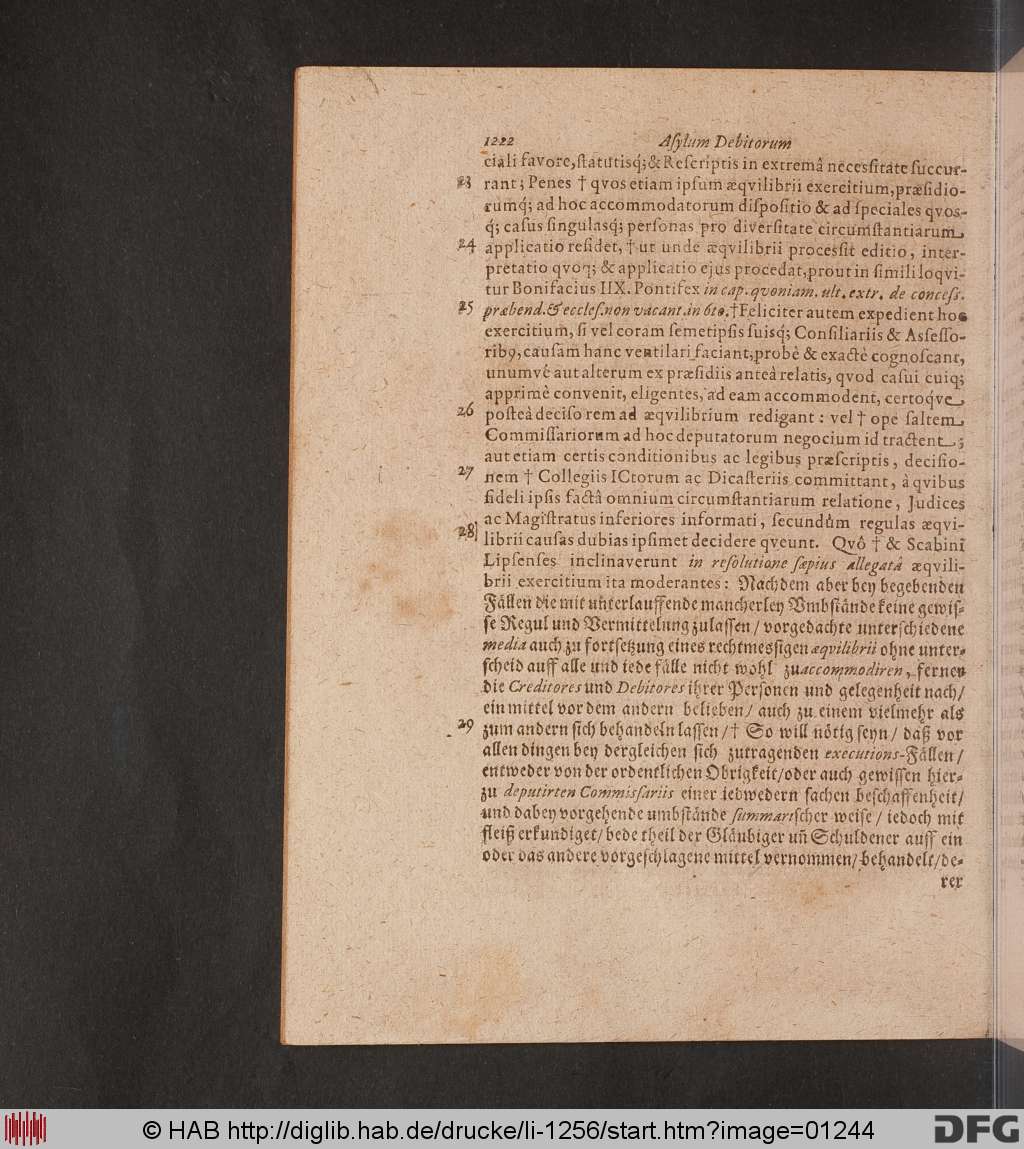 1222 Aſylum Debitorum
ciali favore, ſtatutisq́; & Reſcriptis in extremâ neceſſitate ſuccur-
23 rant; Penes † qvos etiam ipſum æqvilibrii exercitium, præſidio-
rumq́; ad hoc accommodatorum diſpoſitio & ad ſpeciales qvos-
q́; caſus ſingulasq́; perſonas pro diverſitate circumſtantiarum
24 applicatio reſidet, † ut unde æqvilibrii proceſſit editio, inter-
pretatio qvoq; & applicatio ejus procedat, prout in ſimili loqvi-
tur Bonifacius IIX. Pontifex in cap. qvoniam. ult. extr. de conceſſ.
25 præbend. & eccleſ. non vacant. in 6to. † Feliciter autem expedient hoc
exercitium, ſi vel coram ſemetipſis ſuisq́; Conſiliariis & Aſſeſſo-
rib9, cauſam hanc ventilari faciant, probè & exactè cognoſcant,
unumvè aut alterum ex præſidiis anteà relatis, qvod caſui cuiq;
apprimè convenit, eligentes, ad eam accommodent, certoq́ve
26 poſteà deciſo rem ad æqvilibrium redigant: vel † ope ſaltem
Commiſſariorum ad hoc deputatorum negocium id tractent;
aut etiam certis conditionibus ac legibus præſcriptis, deciſio-
27 nem † Collegiis ICtorum ac Dicaſteriis committant, à qvibus
fideli ipſis factâ omnium circumſtantiarum relatione, Judices
ac Magiſtratus inferiores informati, ſecundùm regulas æqvi-
28 librii cauſas dubias ipſimet decidere qveunt. Qvô † & Scabini
Lipſenſes inclinaverunt in reſolutione ſæpius allegatâ æqvili-
brii exercitium ita moderantes: Nachdem aber bey begebenden
Fällen die mit unterlauffende mancherley Vmbſtände keine gewiſ-
ſe Regul und Vermittelung zulaſſen / vorgedachte unterſchiedene
media auch zu fortſetzung eines rechtmeſſigen æqvilibrii ohne unter-
ſcheid auff alle und iede fälle nicht wohl zu accommodiren, ferner
die Creditores und Debitores ihrer Perſonen und gelegenheit nach /
ein mittel vor dem andern belieben / auch zu einem vielmehr als
29 zum andern ſich behandeln laſſen / † So will nötig ſeyn / daß vor
allen dingen bey dergleichen ſich zutragenden executions-Fällen /
entweder von der ordentlichen Obrigkeit / oder auch gewiſſen hier-
zu deputirten Commiſſariis einer iedwedern ſachen beſchaffenheit /
und dabey vorgehende umbſtände ſummariſcher weiſe / iedoch mit
fleiß erkundiget / bede theil der Gläubiger uñ Schuldener auff ein
oder das andere vorgeſchlagene mittel vernommen / behandelt / de-
rer
© HAB http://diglib.hab.de/drucke/li-1256/start.htm?image=01244
DFG